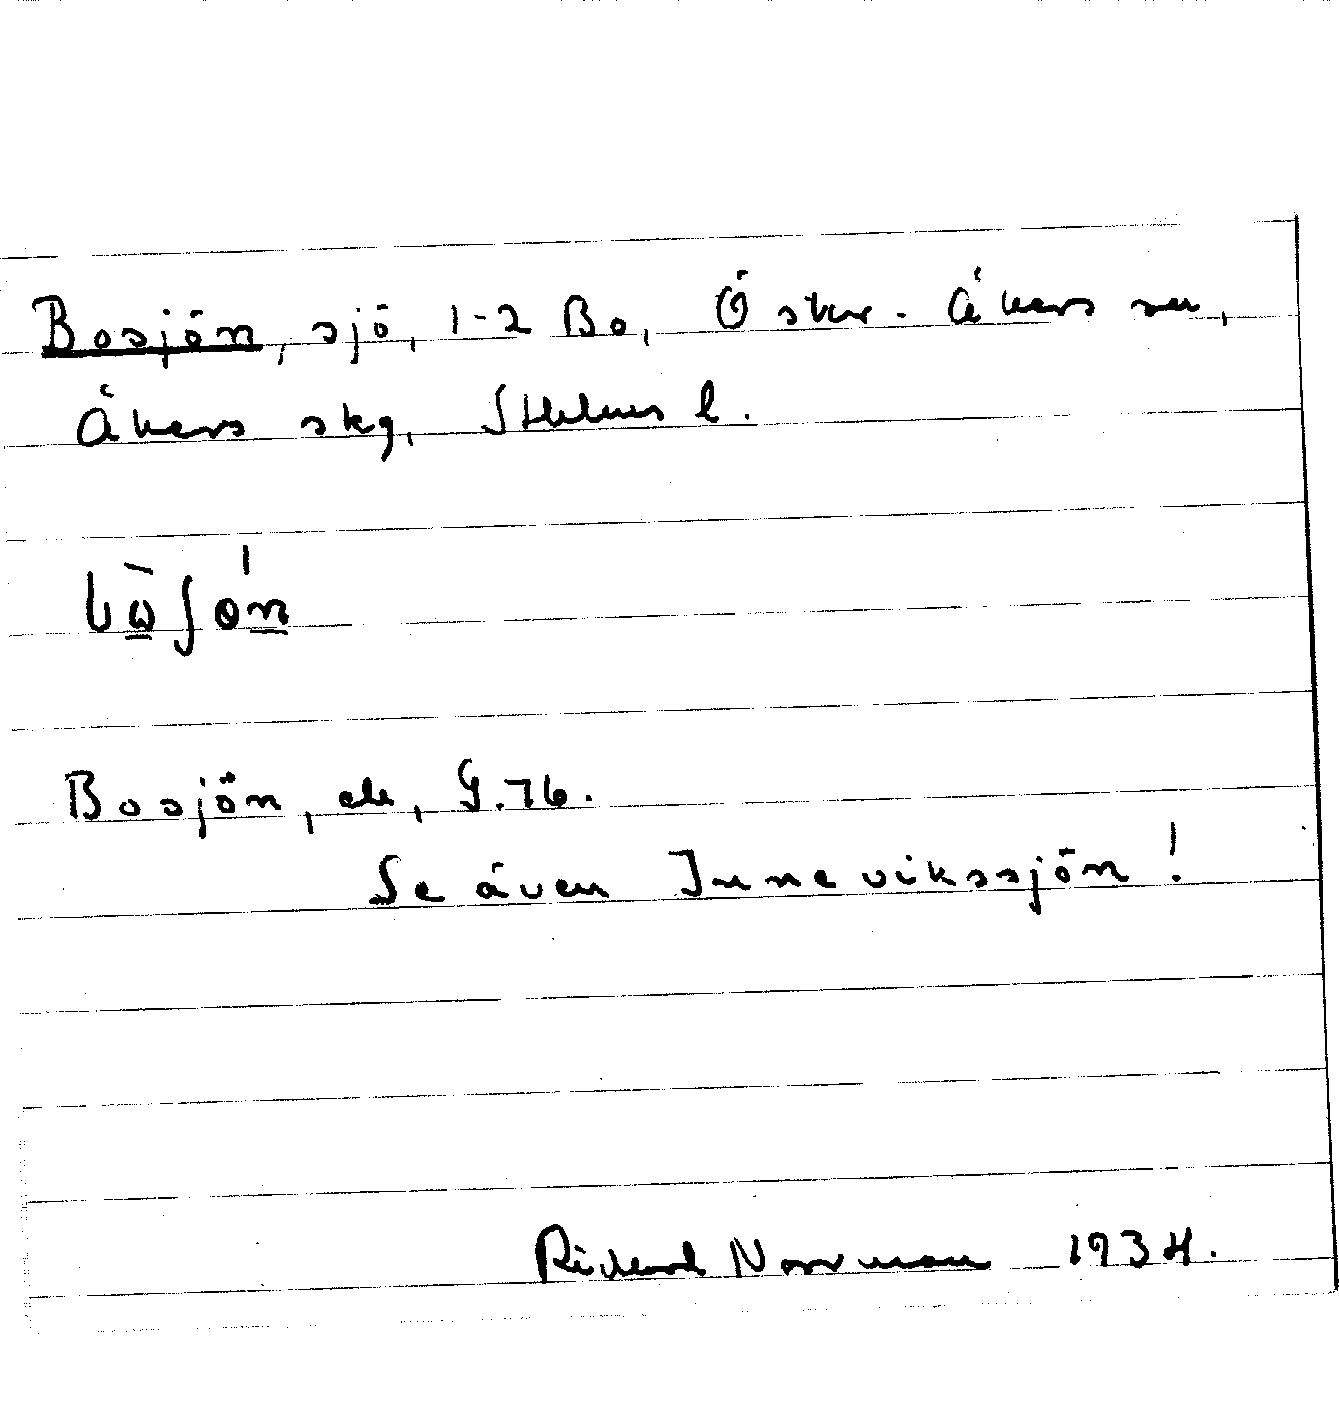 Bosjön, sjö, 1-2 Bo, Ö skvr. Åkers sn,
Åkers skg, Sthlms l.
bὼʃǿn
Bosjön, ek, G.76.
Se även Inneviksjön!
Rickard Norrman 1934.